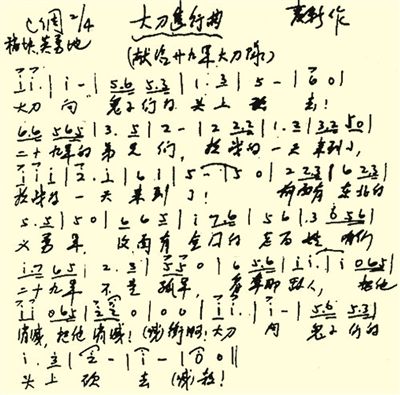 C调 2/4 大刀进行曲 麦新作
稍快 英勇地
(献给廿九军大刀队)
i i. | i - | 5.6 5.3 | i. 3 | 5 - | 6 0 |
大刀 向 鬼子们的 头上 砍 去!
6.6 565 | 3. 5 | 2 - | 2 2.3 | 1. 3 | 2.3 50 |
二十九军的 弟兄们, 抗战的一天来到了,
i i i | 2. i | 6 i | 5 - | 5 0 | 2 2.3 | 6 2.3 |
抗战的一天来到了! 前面有 东北的
5. 5 | 5 0 | 6 6.5 | i 7.6 | 5 6 | 3 0 5.6 |
义勇军, 后面有 全国的 老百姓, 咱们
i.7 6.5 | 2. 3 | 5.5 0 | 6 5.6 | i i. | i 0 6.5 |
二十九军 不是 孤军, 看准那敌人, 把他
i i 0 6.5 | 2 2 0 | 0 0 | i i. | i - | 5.6 5.3 |
消灭, 把他消灭! (喊)冲啊! 大刀 向 鬼子们的
i. 3 | 2 - | i - | 0 0 ||
头上 砍 去 (喊)杀!